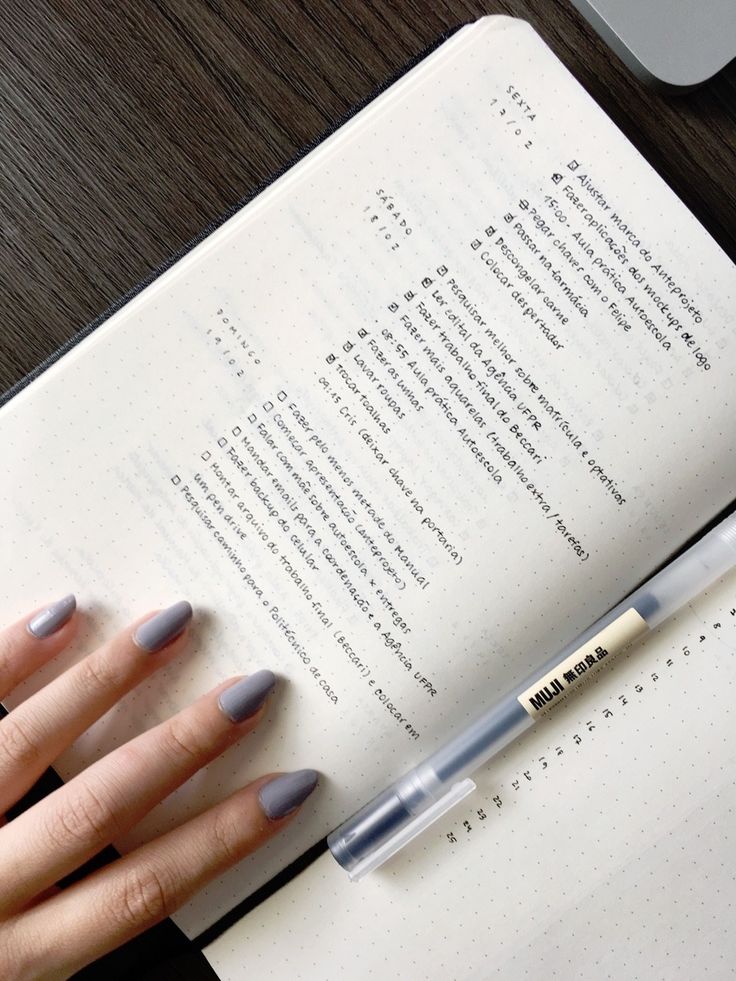 SEXTA
17/02
Ajustar marca do Anteprojeto
Fazer aplicações dos mockups de logo
15:00 - Aula prática Autoescola
Pegar chaves com o Felipe
Passar na farmácia
Descongelar carne
Colocar despertador
SÁBADO
18/02
Pesquisar melhor sobre matrícula e optativas
Ler edital da Agência UFPR
Fazer trabalho final do Beccari
Fazer mais aquarelas (trabalho extra/tarefas)
08:55 Aula prática Autoescola
Fazer as unhas
Lavar roupas
Trocar toalhas
09:15 Cris (deixar chave na portaria)
DOMINGO
19/02
Fazer pelo menos metade do Manual
Começar apresentação (Anteprojeto)
Falar com mãe sobre autoescola x entregas
Mandar emails para a coordenação e a Agência UFPR
Fazer backup do celular
Montar arquivo do trabalho final (Beccari) e colocar em
um pen drive
Pesquisar caminho para o Politécnico de casa
MUJI 無印良品
7
8
9
10
11
12
13
14
15
16
17
18
19
20
21
22
23
24
25